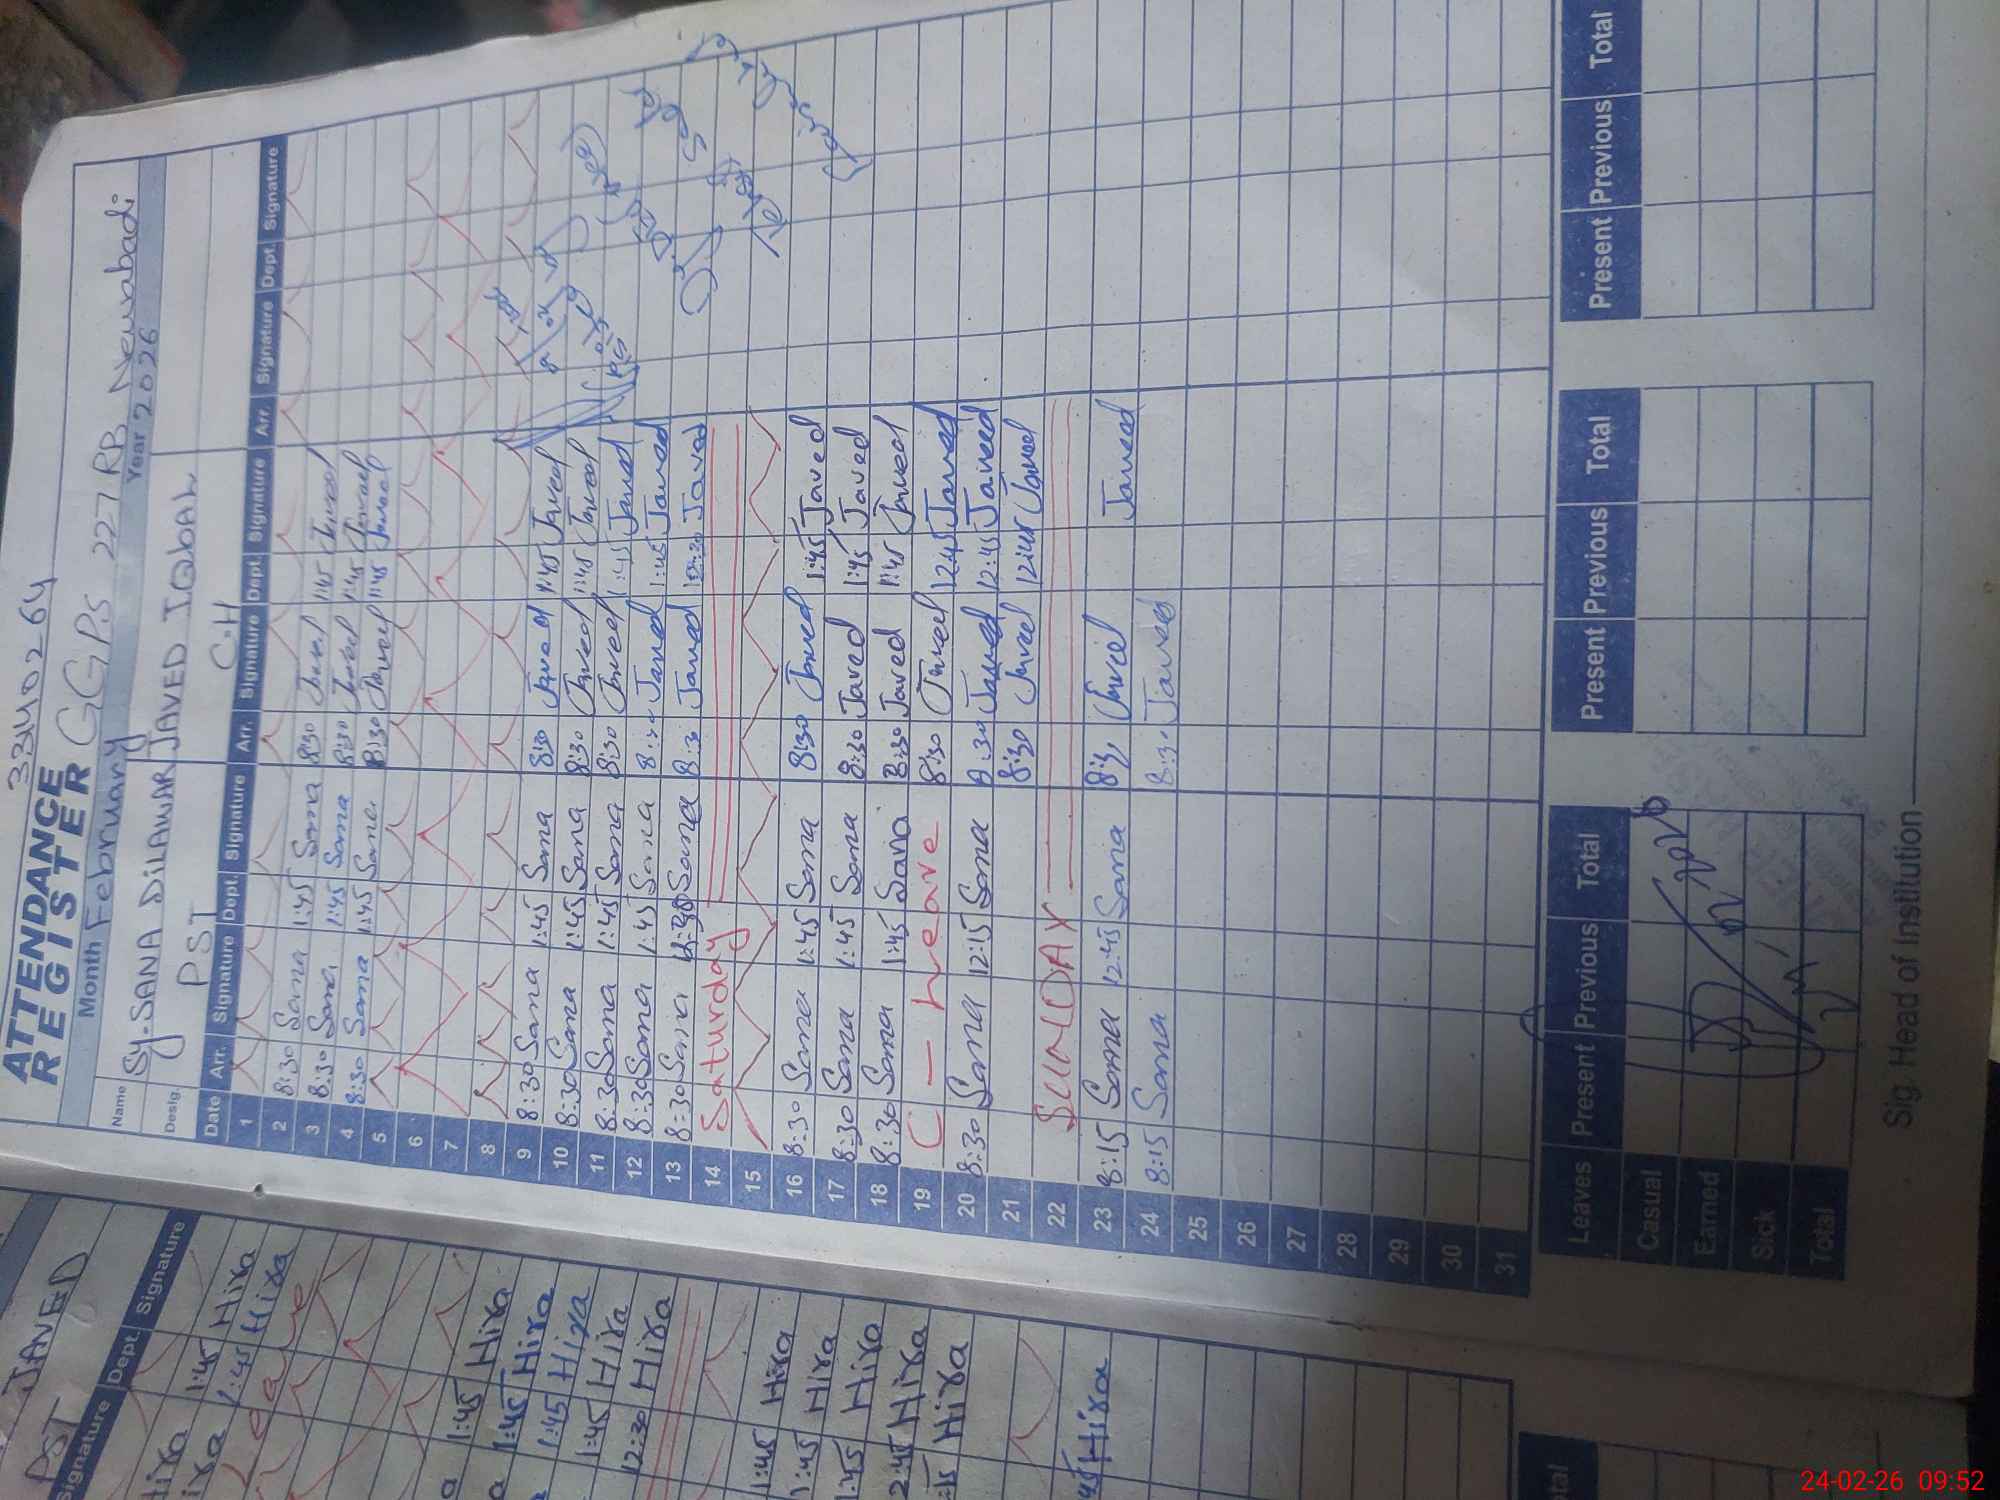 33402 64
ATTENDANCE
REGISTER GGPS 227 RB Newabadi
Month February Year 2026
Name Sy-SANA DILAWAR JAVED IQBAL
Desig. PST C-H
Date Arr. Signature Dept. Signature Arr. Signature Dept. Signature Arr. Signature Dept. Signature
1
2 8:30 Sana 1:45 Sana 8:30 Javed 1:45 Javed
3 8:30 Sana 1:45 Sana 8:30 Javed 1:45 Javed
4 8:30 Sana 1:45 Sana 8:30 Javed 1:45 Javed
5
6
7
8
9 8:30 Sana 1:45 Sana 8:30 Javed 1:45 Javed
10 8:30 Sana 1:45 Sana 8:30 Javed 1:45 Javed
11 8:30 Sana 1:45 Sana 8:30 Javed 1:45 Javed
12 8:30 Sana 1:45 Sana Javed 1:45 Javed
13 8:30 Sana Sana Javed Javed
14 Saturday
15
16 8:30 Sana 1:45 Sana 8:30 Javed 1:45 Javed
17 8:30 Sana 1:45 Sana 8:30 Javed 1:45 Javed
18 8:30 Sana 1:45 Sana 8:30 Javed 1:45 Javed
19 C - Leave 8:30 Javed 12:45 Javed
20 8:30 Sana 12:15 Sana 8:30 Javed 12:45 Javed
21 8:30 Javed 12:45 Javed
22 SUNDAY
23 8:15 Sana 12:45 Sana Javed Javed
24 8:15 Sana 8:30 Javed
25
26
27
28
29
30
31
Leaves Present Previous Total Present Previous Total Present Previous Total
Casual
Earned
Sick
Total
Sig. Head of Institution
JAVED
PST
Signature Dept. Signature
Hira 1:45 Hira
Hira 1:45 Hira
Leave
1:45 Hira
1:45 Hira
1:45 Hira
1:45 Hira
12:30 Hira
1:45 Hira
1:45 Hira
1:45 Hira
2:45 Hira
:15 Hira
45 Hira
24-02-26 09:52